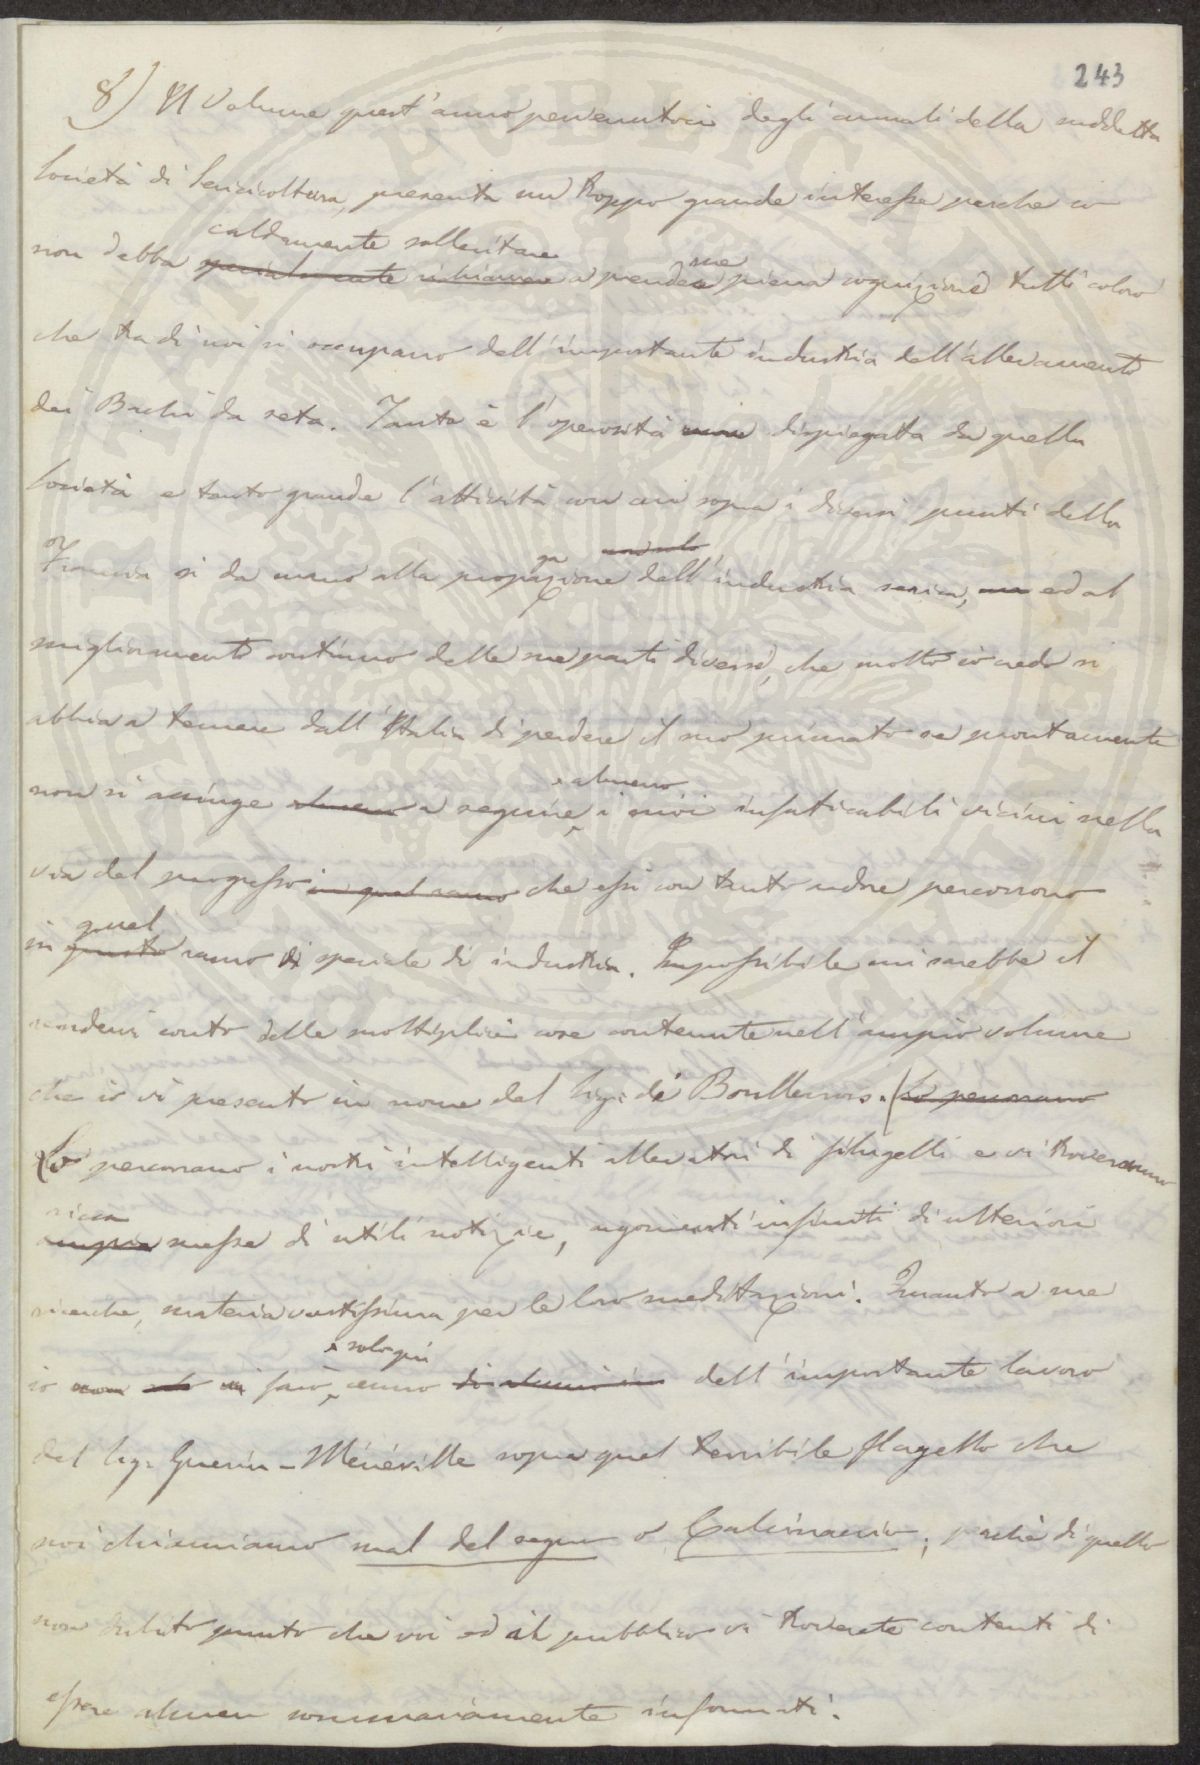 243
8) Il Volume quest'anno pervenutoci degli annali della suddetta
Società di Sericicoltura, presenta un troppo grande interesse perche io
caldamente sollecitare
non debba specialmente richiamare a prenderne piena cognizione tutti coloro
che tra di noi si occupano dell'importante industria dell'allevamento
dei Bachi da seta. Tanta è l'operosità dispiegatta da quella
Società e tanto grande l'attività con cui sopra i diversi punti della
ga non solo
Francia si da mano alla propazione dell'industria serica, ma ed al
miglioramento continuo delle sue parti diverse, che molto io credo si
abbia a temere dall'Italia di perdere il suo primato se prontamente
almeno
non si accinge almeno a seguire i suoi infaticabili vicini nella
via del progresso in quel ramo che essi con tanto ardore percorrono
quel
in questo ramo di speciale di industria. Impossibile mi sarebbe il
rendervi conto delle moltiplici cose contenute nell'ampio volume
che io vi presento in nome del Sigr. de Boullenois. Lo percorrano
Lo percorrano i nostri intelligenti allevatori di filugelli e vi troveranno
ricca
ampia messe di utili notizie, argomenti infiniti di ulteriori
ricerche, materia vastissima per le loro meditazioni. Quanto a me
solo più
io non solo vi farò cenno di alcuni dell'importante lavoro
del Sigr. Guerin-Méneville sopra quel terribile flagello che
noi chiamiamo mal del segno o Calcinaccio; perchè di quello
non dubito punto che voi ed il pubblico vi troverete contenti di
essere almen sommariamente informati.